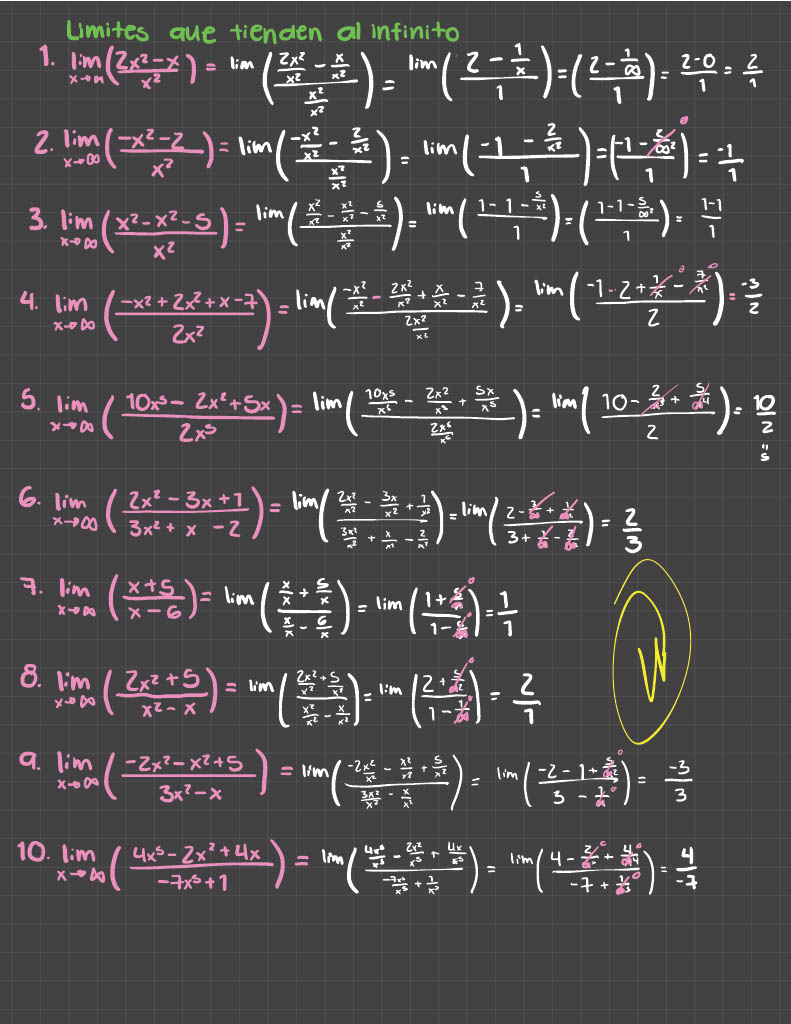 Limites que tienden al infinito
1. lim x→∞ (2x²-x / x²) = lim (2x²/x² - x/x² / x²/x²) = lim (2 - 1/x / 1) = (2 - 1/∞ / 1) = 2-0 / 1 = 2/1
2. lim x→∞ (-x²-2 / x²) = lim (-x²/x² - 2/x² / x²/x²) = lim (-1 - 2/x² / 1) = (-1 - 2/∞² / 1) 0 = -1/1
3. lim x→∞ (x²-x²-5 / x²) = lim (x²/x² - x²/x² - 5/x² / x²/x²) = lim (1-1-5/x² / 1) = (1-1-5/∞² / 1) = 1-1 / 1
4. lim x→∞ (-x²+2x²+x-7 / 2x²) = lim (-x²/x² - 2x²/x² + x/x² - 7/x² / 2x²/x²) = lim (-1-2+1/x 0 - 7/x² 0 / 2) = -3/2
5. lim x→∞ (10x⁵-2x²+5x / 2x⁵) = lim (10x⁵/x⁵ - 2x²/x⁵ + 5x/x⁵ / 2x⁵/x⁵) = lim (10 - 2/∞³ + 5/∞⁴ / 2) = 10/2
" 5
6. lim x→∞ (2x²-3x+1 / 3x²+x-2) = lim (2x²/x² - 3x/x² + 1/x² / 3x²/x² + x/x² - 2/x²) = lim (2 - 3/∞ + 1/∞ / 3 + 1/∞ - 2/∞) = 2/3
7. lim x→∞ (x+5 / x-6) = lim (x/x + 5/x / x/x - 6/x) = lim (1+5/∞ 0 / 1-6/∞ 0) = 1/1
8. lim x→∞ (2x²+5 / x²-x) = lim (2x²/x² + 5/x² / x²/x² - x/x²) = lim (2+5/∞² 0 / 1-1/∞ 0) = 2/1
9. lim x→∞ (-2x²-x²+5 / 3x²-x) = lim (-2x²/x² - x²/x² + 5/x² / 3x²/x² - x/x²) = lim (-2-1+5/∞² 0 / 3-1/∞ 0) = -3/3
10. lim x→∞ (4x⁵-2x²+4x / -7x⁵+1) = lim (4x⁵/x⁵ - 2x²/x⁵ + 4x/x⁵ / -7x⁵/x⁵ + 1/x⁵) = lim (4 - 2/∞³ 0 + 4/∞⁴ 0 / -7 + 1/∞⁵ 0) = 4/-7